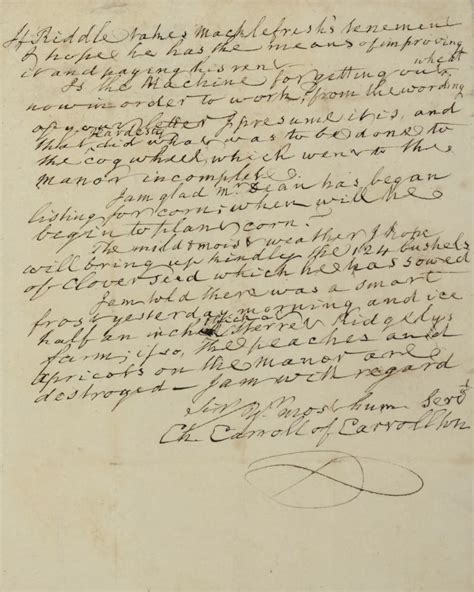 If Riddle takes Macklefresh's tenement
I hope he has the means of improving
it and paying his rent
Is the Machine for getting our wheat
now in order to work; from the wording
of your letter I presume it is, and
that Hardesty did what was to be done to
the cog wheel, which went to the
Manor incomplete.
I am glad Mr Dean has began
listing for corn; when will he
begin to plant corn.
The mild moist weather I hope
will bring up kindly the 124 bushels
of Clover seed which he has sowed
I am told there was a smart
frost yesterday morning and ice
half an inch thick at Sterret Ridgelys
farm; if so, the peaches and
apricots on the Manor are
destroyed — I am with regard
Sir Yr. Most hum Servt
Ch. Carroll of Carrollton